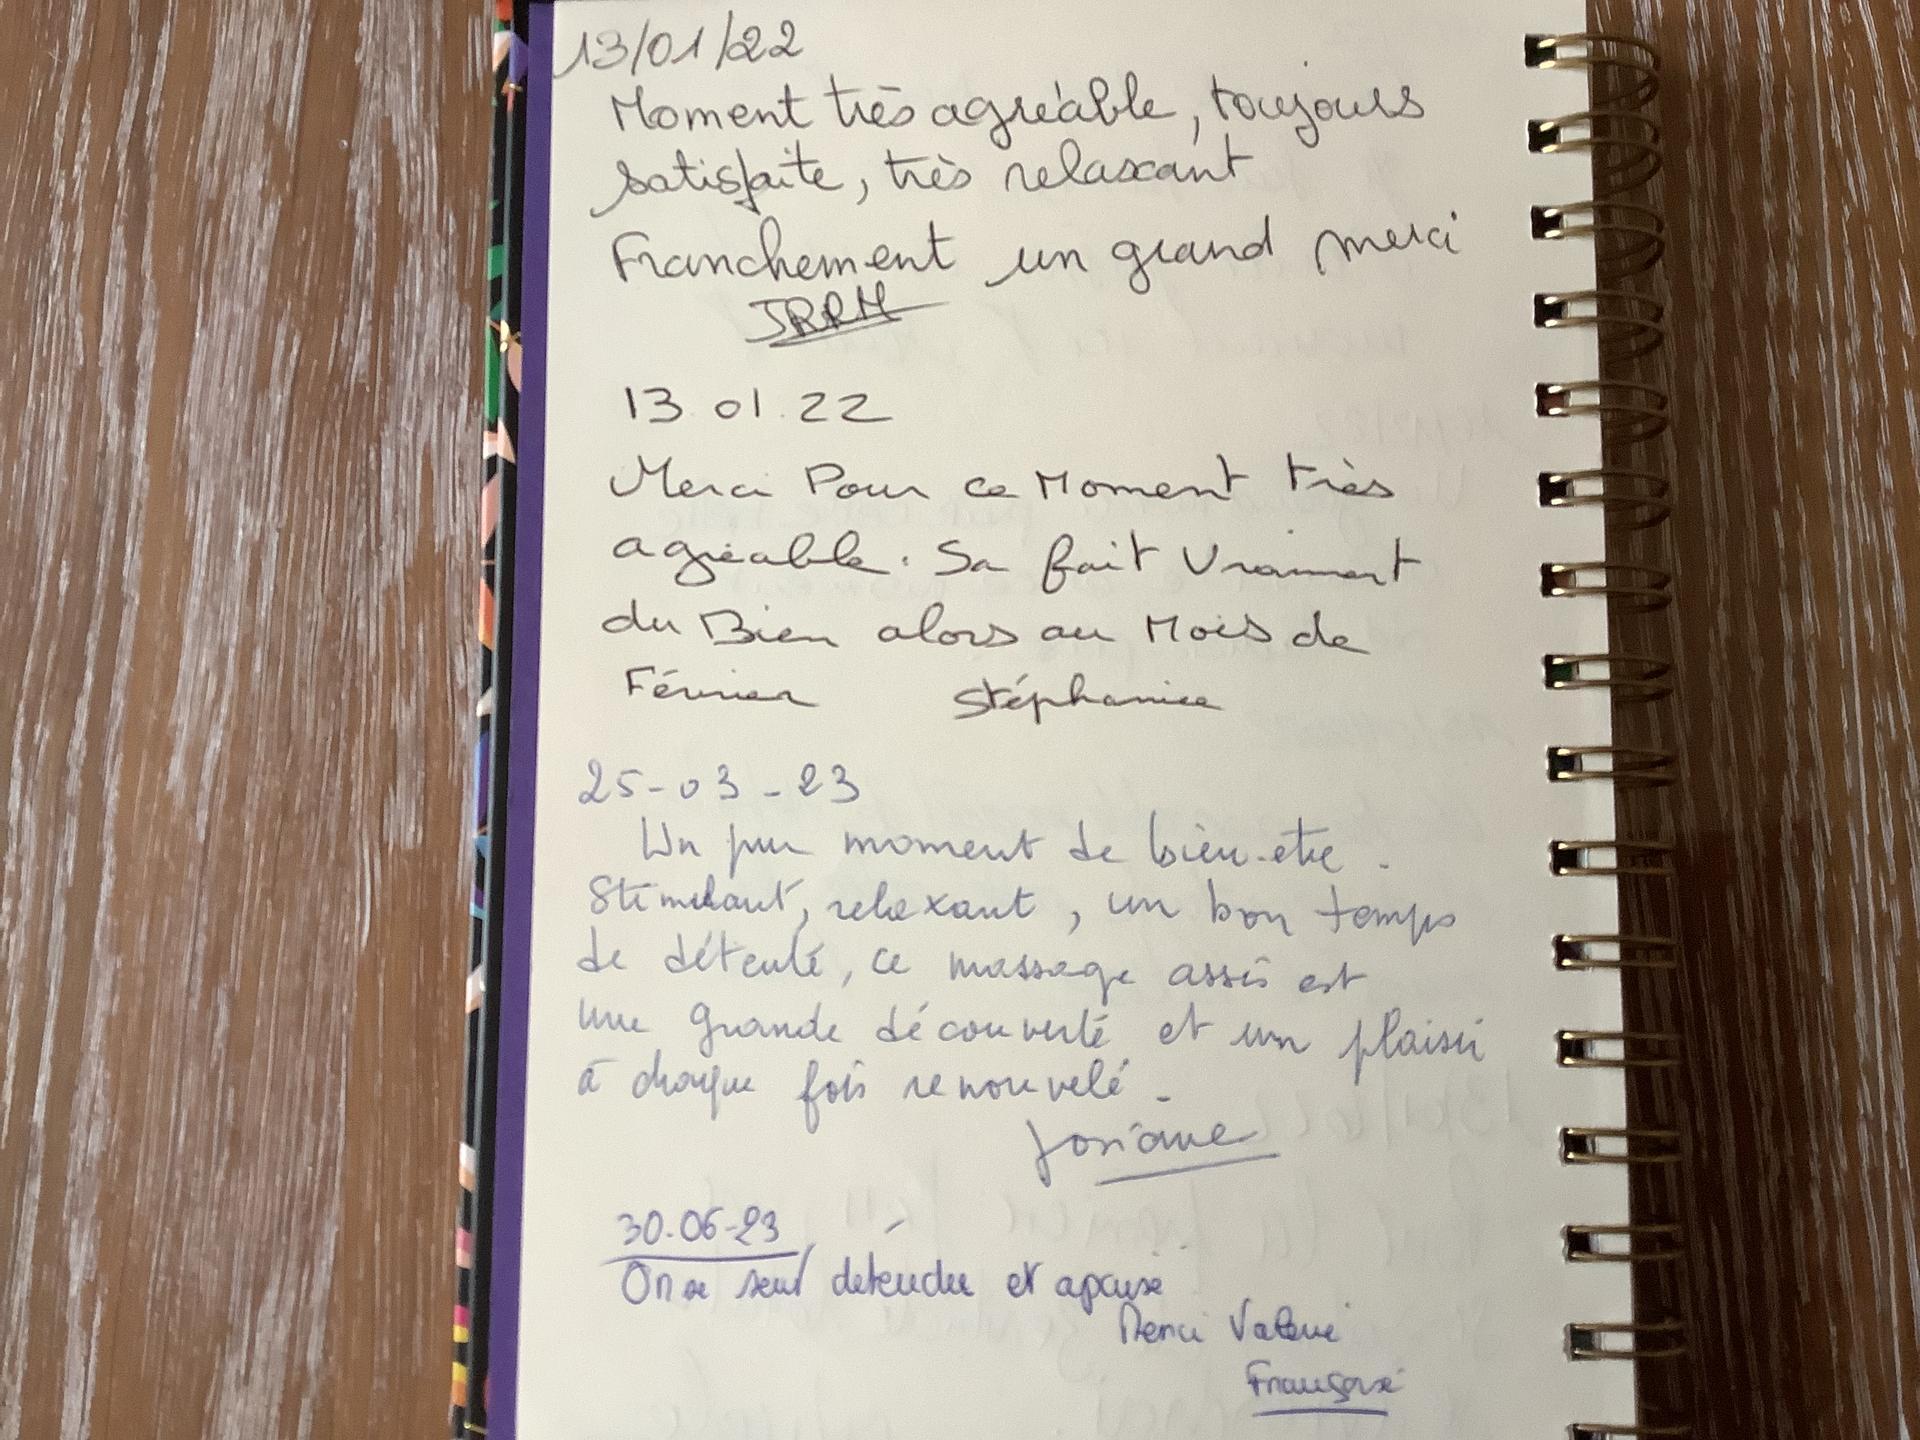 13/01/22
Moment très agréable, toujours
satisfaite, très relaxant
Franchement un grand merci
13.01.22
Merci Pour ce Moment très
agréable. Sa fait Vraiment
du Bien alors au Mois de
Février Stéphanie
25-03-23
Un pur moment de bien-etre.
Stimulant, relaxant, un bon temps
de détente, ce massage assis est
une grande découverte et un plaisir
à chaque fois renouvelé.
Josiane
30.06-23
On se sent détendue et apaisé
Merci Valérie
Françoise